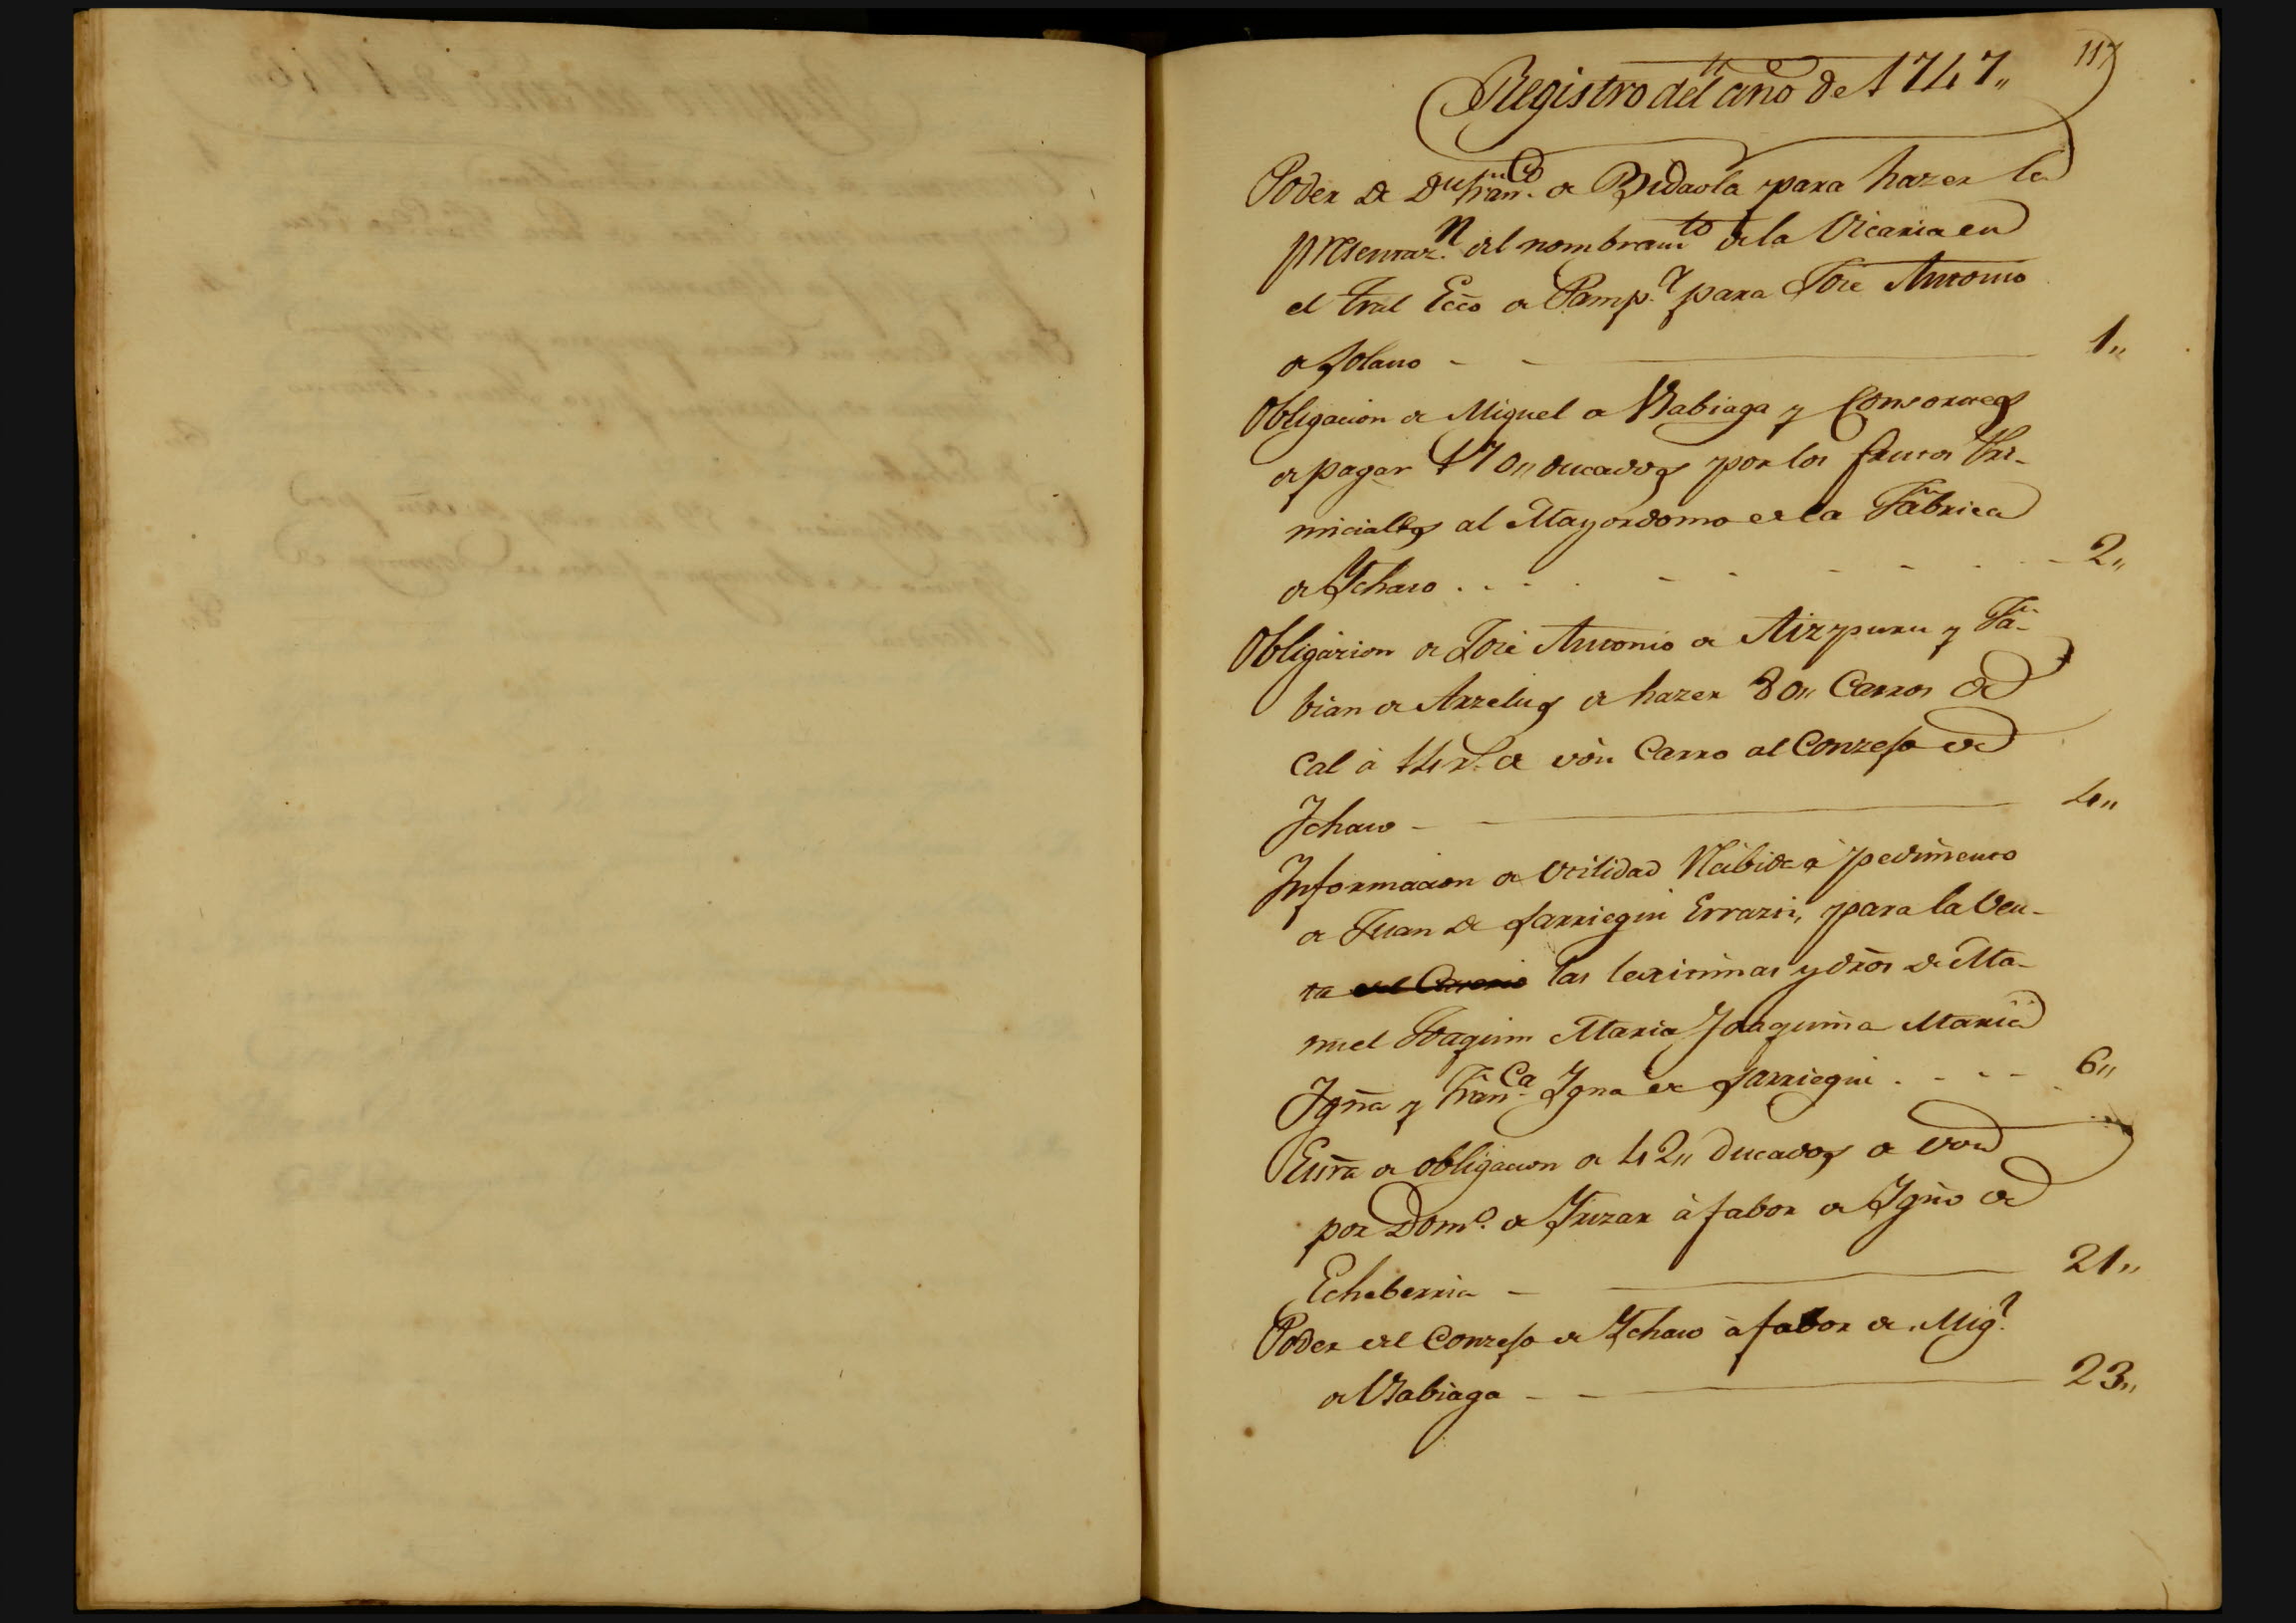 117
Registro del año de 1747„
Poder de Dn Franco de Bidaola para hazer la
presentazn del nombramto de la Vicaria en
el tral Ecco de Pampa para Jose Antonio
de Solano - - 1„
Obligacion de Miguel de Vsabiaga y Consortes
de pagar 170„ ducados por los frutos Pri-
miciales al Mayordomo de la Fabrica
de Ychaso . . . - - - - - - 2„
Obligazion de Jose Antonio de Aizpuru y Fa-
bian de Arzelus de hazer 80„ Carros de
Cal à 14 rs de von Carro al Conzejo de
Ychaso - 4„
Informacion de Vtilidad Rabida à pedimento
de Juan de Sarriegui Errazti, para la Ven-
ta las lexitimas y dros de Ma-
nuel Joaquin Maria Joaquina Maria
Ygna y Franca Ygna de Sarriegui . - - - 6„
Escra de obligacion de 42„ ducados de von
por Domo de Yrizar à fabor de Ygno de
Echeberria - 21„
Poder del Conzejo de Ychaso à fabor de Migl
de Vsabiaga - - 23„